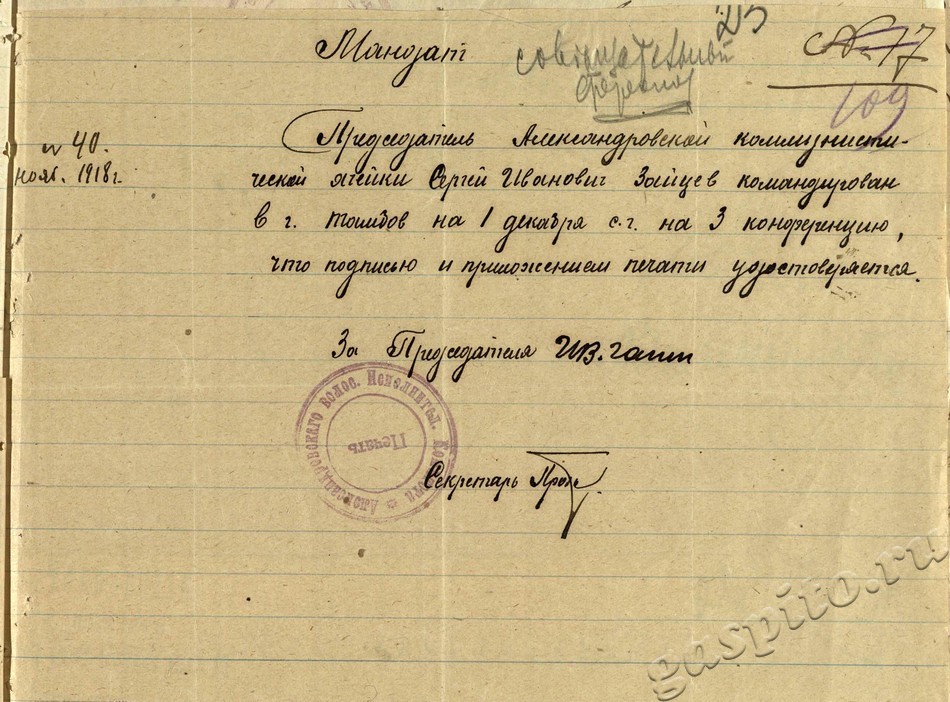 25
Мандат
совещательный
№ 77
109
№ 40.
нояб. 1918 г.
Председатель Александровской коммунисти-
ческой ячейки Сергей Иванович Зайцев командирован
в г. Тамбов на 1 декабря с.г. на 3 конференцию,
что подписью и приложением печати удостоверяется.
За Председателя
Александровскаго Волос. Исполнител. Комитета
Печать
Секретарь
gaspito.ru